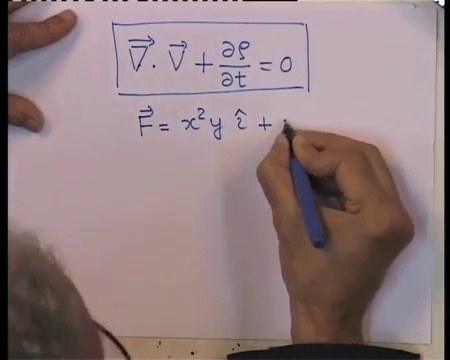 ∇⃗ · V⃗ + ∂ρ/∂t = 0
F⃗ = x²y î +